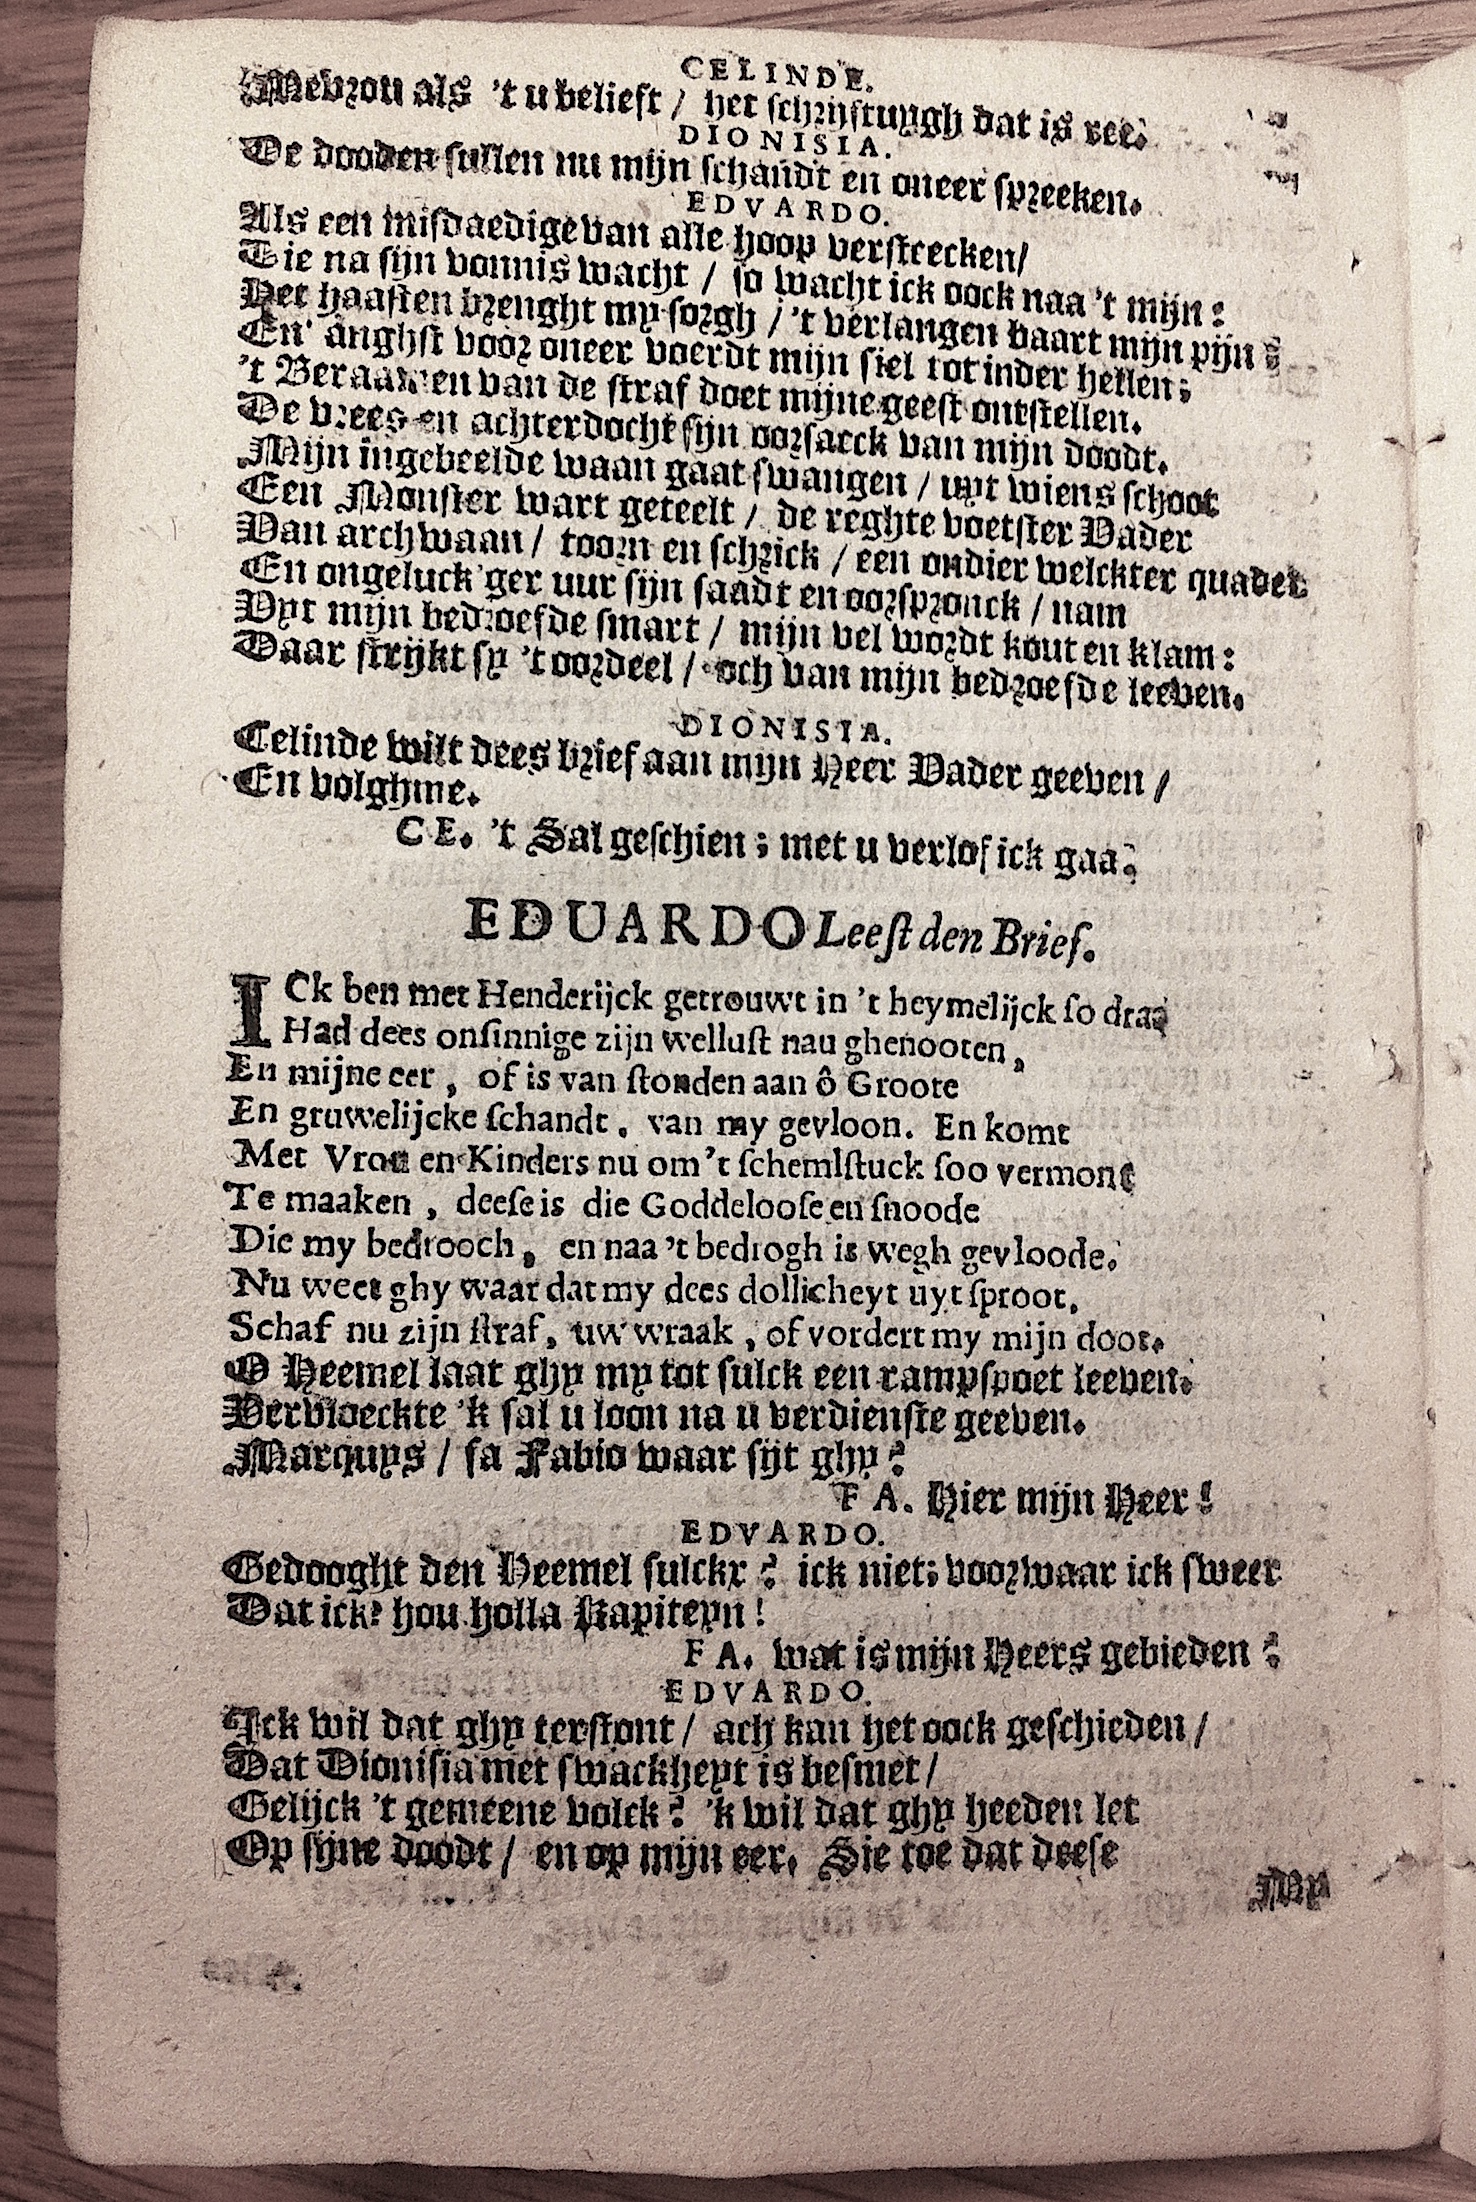 CELINDE.
Mevrou als 't u belieft / het schrijftuygh dat is ree.
DIONISIA.
De dooden sullen nu mijn schandt en oneer spreeken.
EDVARDO.
Als een misdaedige van alle hoop versteecken /
Die na sijn vonnis wacht / so wacht ick oock naa 't mijn:
Het haasten brenght my sorgh / 't verlangen baart mijn pijn:
En anghst voor oneer voerdt mijn siel tot inder hellen;
't Beraamen van de straf doet mijne geest ontstellen.
De vrees en achterdocht sijn oorsaeck van mijn doodt.
Mijn ingebeelde waan gaat swangen / uyt wiens schoot
Een Monster wart geteelt / de reghte voetster Vader
Van archwaan / toorn en schrick / een ondier welckter quader
En ongeluck'ger uur sijn saadt en oorspronck / nam
Uyt mijn bedroefde smart / mijn vel wordt kout en klam:
Daar strijkt sy 't oordeel / och van mijn bedroefde leeven.
DIONISIA.
Celinde wilt dees brief aan mijn Heer Vader geeven /
En volghme.
CE. 't Sal geschien; met u verlof ick gaa.
EDUARDO Leest den Brief.
ICk ben met Henderijck getrouwt in 't heymelijck so draa
Had dees onsinnige zijn wellust nau ghenooten,
En mijne eer, of is van stonden aan ô Groote
En gruwelijcke schandt, van my gevloon. En komt
Met Vrou en Kinders nu om 't schemlstuck soo vermont
Te maaken, deese is die Goddeloose en snoode
Die my bedrooch, en naa 't bedrogh is wegh gevloode.
Nu weet ghy waar dat my dees dollicheyt uyt sproot,
Schaf nu zijn straf, uw wraak, of vordert my mijn doot.
O Heemel laat ghy my tot sulck een rampspoet leeven.
Vervloeckte 'k sal u loon na u verdienste geeven.
Marquys / sa Fabio waar sijt ghy?
FA. Hier mijn Heer!
EDVARDO.
Gedooght den Heemel sulckx? ick niet; voorwaar ick sweer
Dat ick? hou holla Kapiteyn!
FA. wat is mijn Heers gebieden?
EDVARDO.
Ick wil dat ghy terstont / ach kan het oock geschieden /
Dat Dionisia met swackheyt is besmet /
Gelijck 't gemeene volck? 'k wil dat ghy heeden let
Op sijne doodt / en op mijn eer. Sie toe dat deese